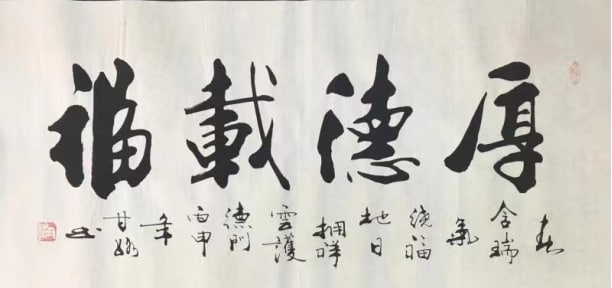 厚德載福
春
含瑞
氣
繞福
地日
擁祥
雲護
德門
丙申
年
甘
書